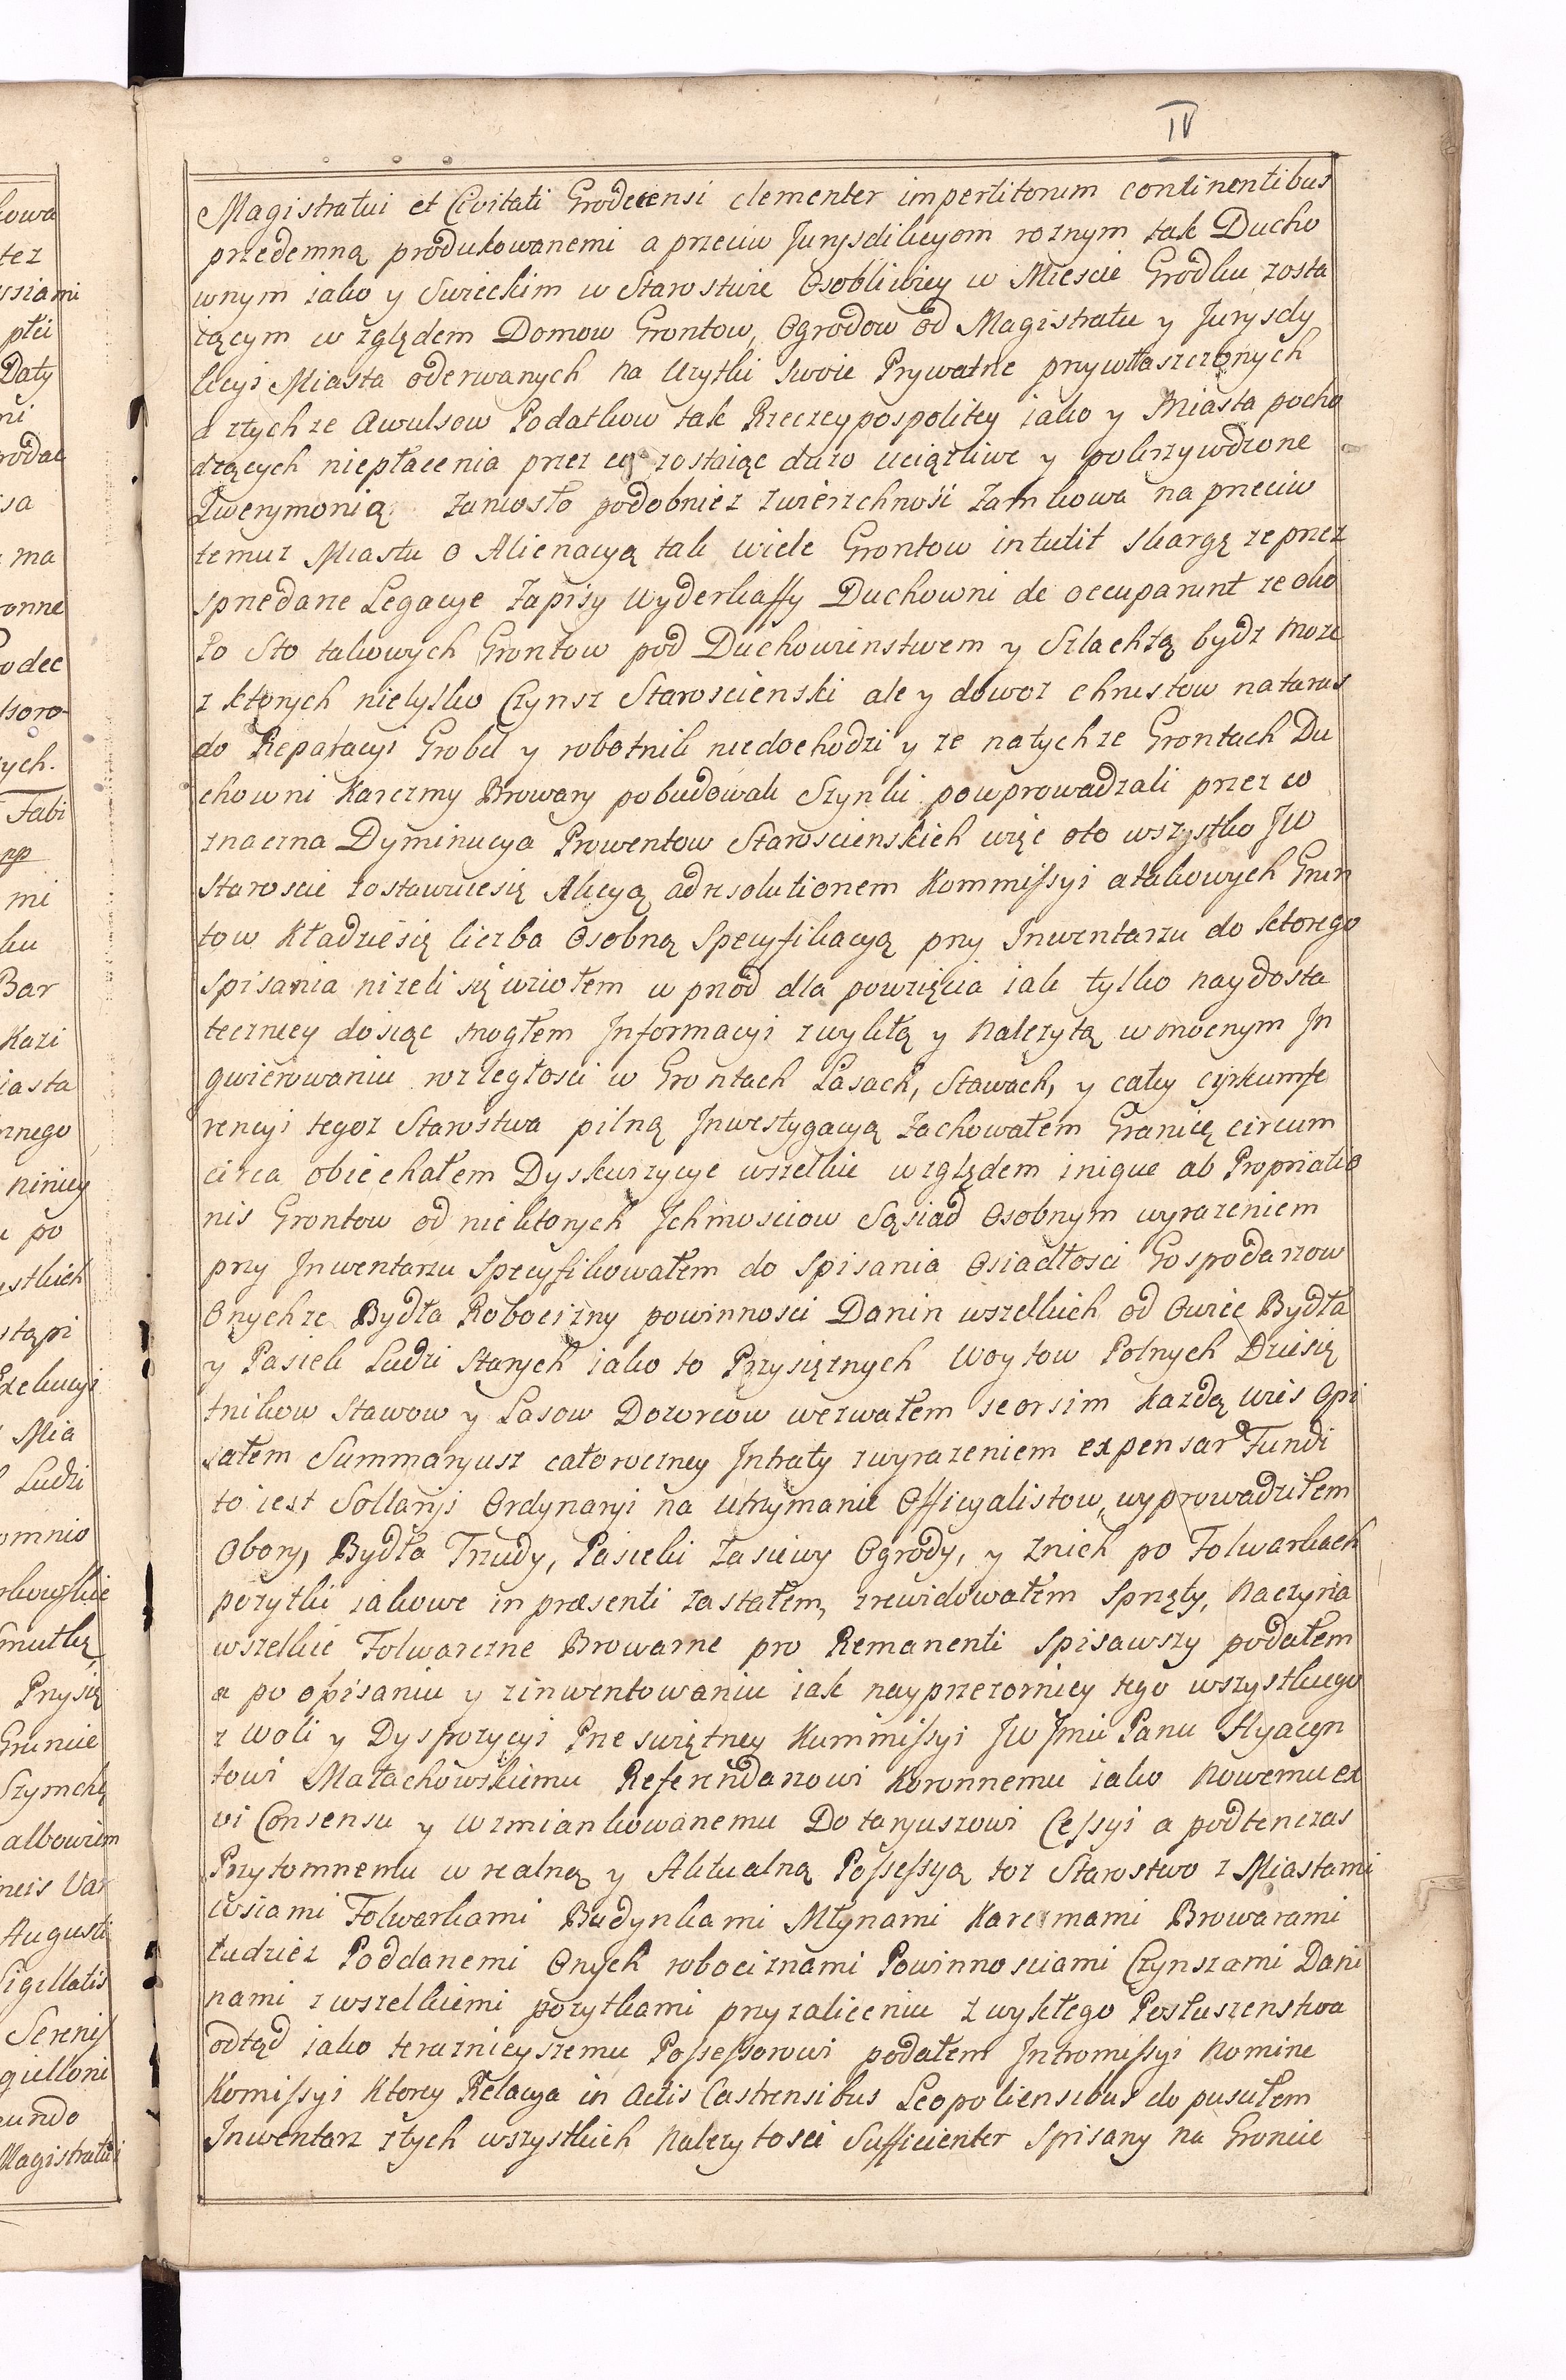 IV
Magistratui et Civitati Grodecensi clementer impertitorum continentibus
przedemną produkowanemi a przeciw Jurysdikcyom roznym tak Ducho
wnym iako y Swieckim w Starostwie Osobliwiey w Miescie Grodku zosta
iącym w zględem Domow Grontow, Ogrodow od Magistratu y Jurysdy
kcyi Miasta oderwanych na Uzytki swoie Prywatne przywłaszczonych
a ztychze Awulsow Podatkow tak Rzeczypospolitey iako y Miasta pocho
dzących niepłacenia przez co zostaiąc duzo uciązliwe y pokrzywdzone
Qwerymonią zaniosło podobniez zwierzchność Zamkowa na przeciw
temuz Miastu o Alienacyą tak wiele Grontow intulit skargę ze przez
sprzedane Legacye Zapisy Wyderkaffy Duchowni de occuparunt ze oko
ło Sto takowych Grontow pod Duchowienstwem y Szlachtą bydz moze
z ktorych nietylko Czynsz Staroscienski ale y dowoz chrustow na taras
do Reparacyi Grobel y robotnik niedochodzi y ze natychze Grontach Du
chowni Karczmy Browary pobudowali Szynki powprowadzali przez co
znaczna Dyminucya Prowentow Staroscienskich więc oto wszystko JW
Staroscie zostawuiesię Akcyą ad resolutionem Kommissyi a takowych Grun
tow Kładziesię liczba Osobną Specyfikacyą przy Inwentarzu do ktorego
spisania nizeli się wziołem w przod dla powzięcia iak tylko naydosta
teczniey dosiąc mogłem Informacyi zwykłą y Nalezytą w mocnym In
qwierowaniu rozległosci w Grontach Lasach, Stawach, y całey cyrkumfe
rencyi tegoz Starostwa pilną Inwestygacyą zachowałem Granicę circum
circa obiechałem Dyskwizycye wszelkie względem inique ab Propriatio
nis Grontow od niektorych Jchmosciow Sąsiad Osobnym wyrazeniem
przy Inwentarzu Specyfikowałem do Spisania Osiadłosci Gospodarzow
Onychze Bydła Robocizny powinnosci Danin wszelkich od Owiec Bydła
y Pasiek Ludzi Starych iako to Przysięznych Woytow Polnych Dziesię
tnikow Stawow y Lasow Dozorcow wezwałem seorsim Kazdą wies Opi
sałem Summaryusz całoroczney Intraty zwyrazeniem expensar Fundi
to iest Sollaryi Ordynaryi na utrzymanie Officyalistow wyprowadziłem
Obory, Bydła Trzody, Pasieki Zasiewy Ogrody, y Znich po Folwarkach
pozytki iakowe in præsenti zastałem, zrewidowałem Sprzęty, Naczynia
wszelkie Folwarczne Browarne pro Remanenti spisawszy podałem
a po opisaniu y zinwentowaniu iak nayprzezorniey tego wszystkiego
z Woli y Dyspozycyi Prze swiętney Kummissyi JW Jmci Panu Hyacyn
towi Małachowskiemu Referendarzowi Koronnemu iako Nowemu ex
vi Consensu y Wzmiankowanemu Dotaryuszowi Cessyi a podtenczas
Przytomnemu w realną y Aktualną Possessyą toz Starostwo z Miastami
Wsiami Folwarkami Budynkami Młynami Karczmami Browarami
tudziez Poddanemi Onych robociznami Powinnosciami Czynszami Dani
nami z wszelkiemi pozytkami przy zaleceniu zwykłego Posłuszenstwa
odtąd iako terazniey szemu Possessorowi podałem Intromissyi Nomine
Komissyi Ktorey Relacya in Actis Castrensibus Leopoliensibus do pusciłem
Inwentarz ztych wszystkich Nalezytosci Sufficienter Spisany na Groncie